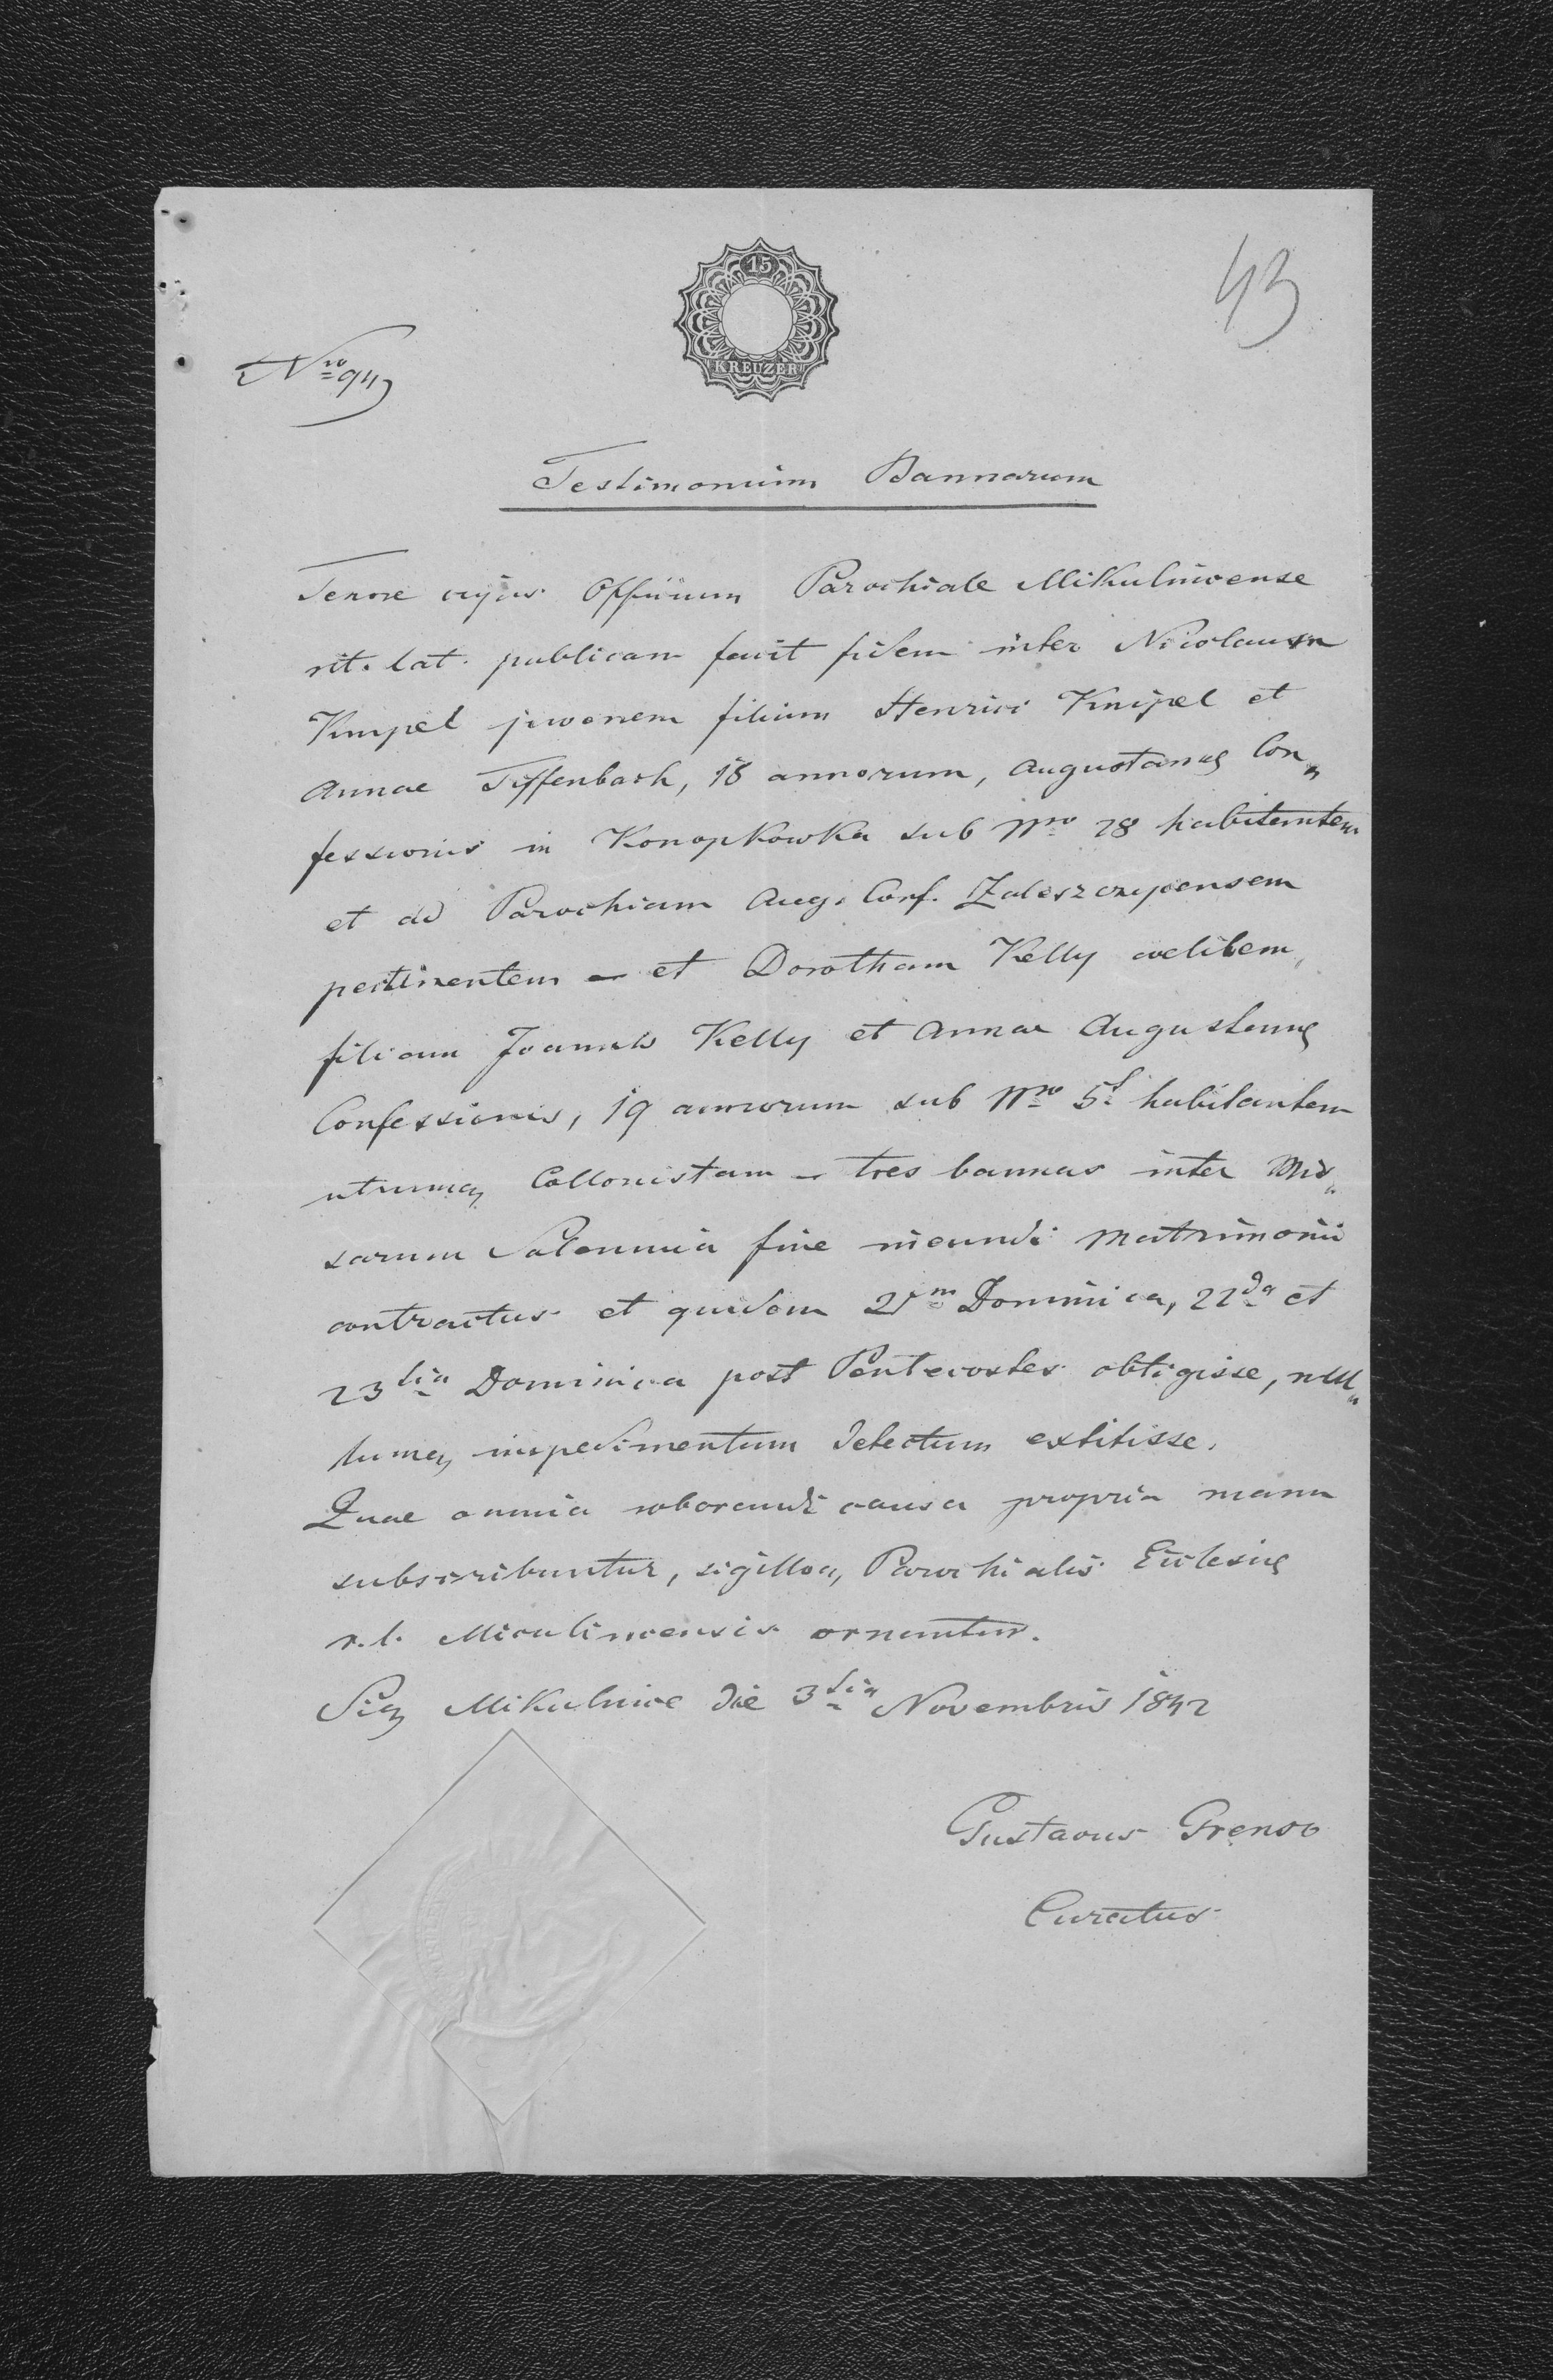 15
KREUZER
43
Nro 94
Testimonium Bannorum
Tenore cujus Officium Parochiale Mikulincense
rit. lat. publicam facit fidem inter Nicolaum
Knipel juvenem filium Henrici Knipel et
Annae Tiffenbach, 18 annorum, Augustanae Con„
fessionis in Konopkowka sub Nro 28 habitantem
et ad Parochiam Aug. Conf. Zaleszczypensem
pertinentem – et Dorotheam Kelly coelibem,
filiam Joannis Kelly et Annae Augustanae
Confessionis, 19 annorum sub Nro 51 habitantem
utrumq Collonistam – tres bannas inter Mis„
sarum Solemnia fine ineundi Matrimonii
contractus et quidem Dominica, 22da et
23tia Dominica post Pentecostes obtigisse, nul„
lumq impedimentum detectum extitisse.
Quae omnia roborandi causa propria manu
subscribuntur, sigilloq Parochialis Ecclesiae
r. l. Miculincensis ornantur.
Sig Mikulince die 3tia Novembris
Gustavus
Curatus